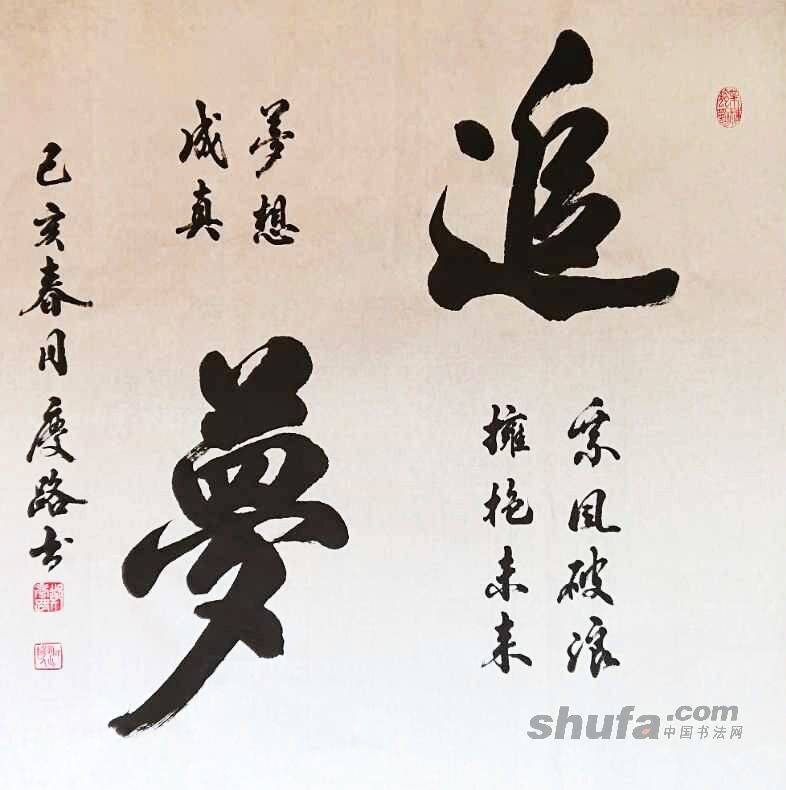 追
乘风破浪
擁抱未来
夢
夢想
成真
己亥春月慶路书
shufa.com
中国书法网